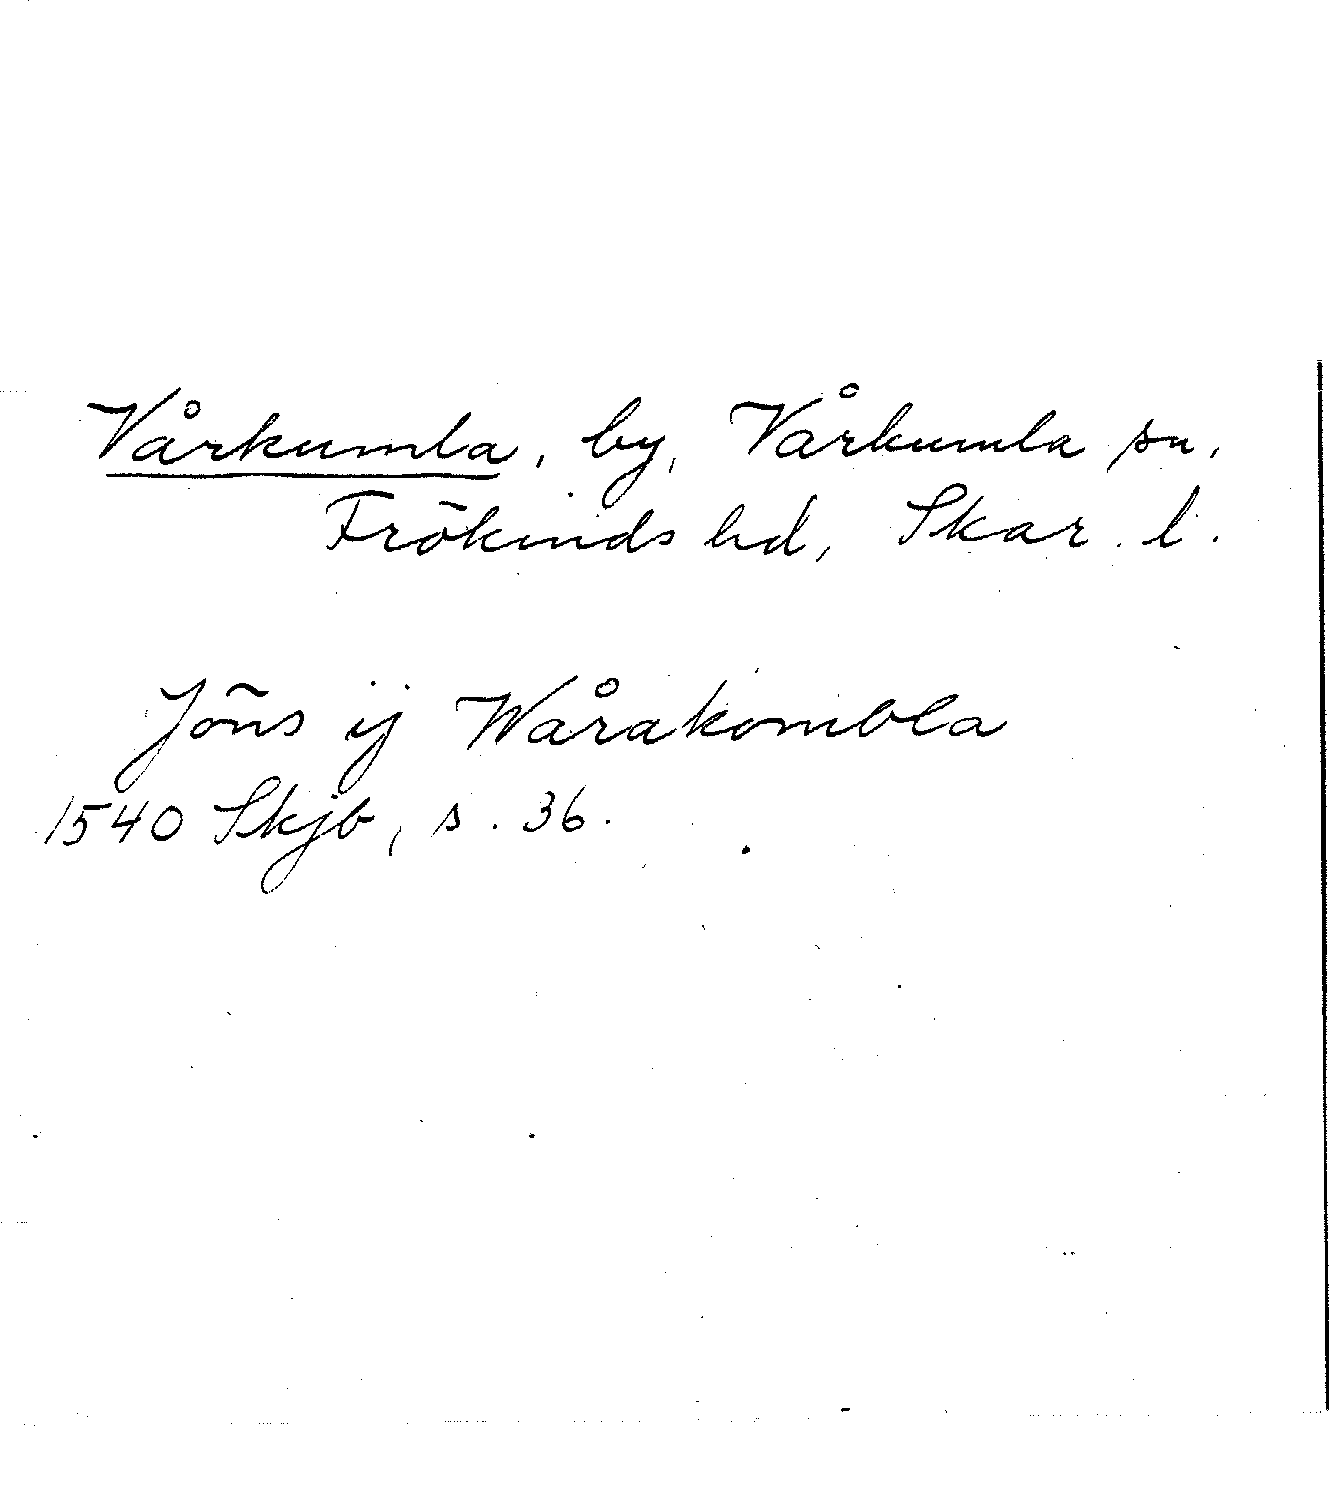 Vårkumla, by, Vårkumla sn,
Frökinds hd, Skar. l.
Jöns ij Wårakombla
1540 Skjb, s. 36.